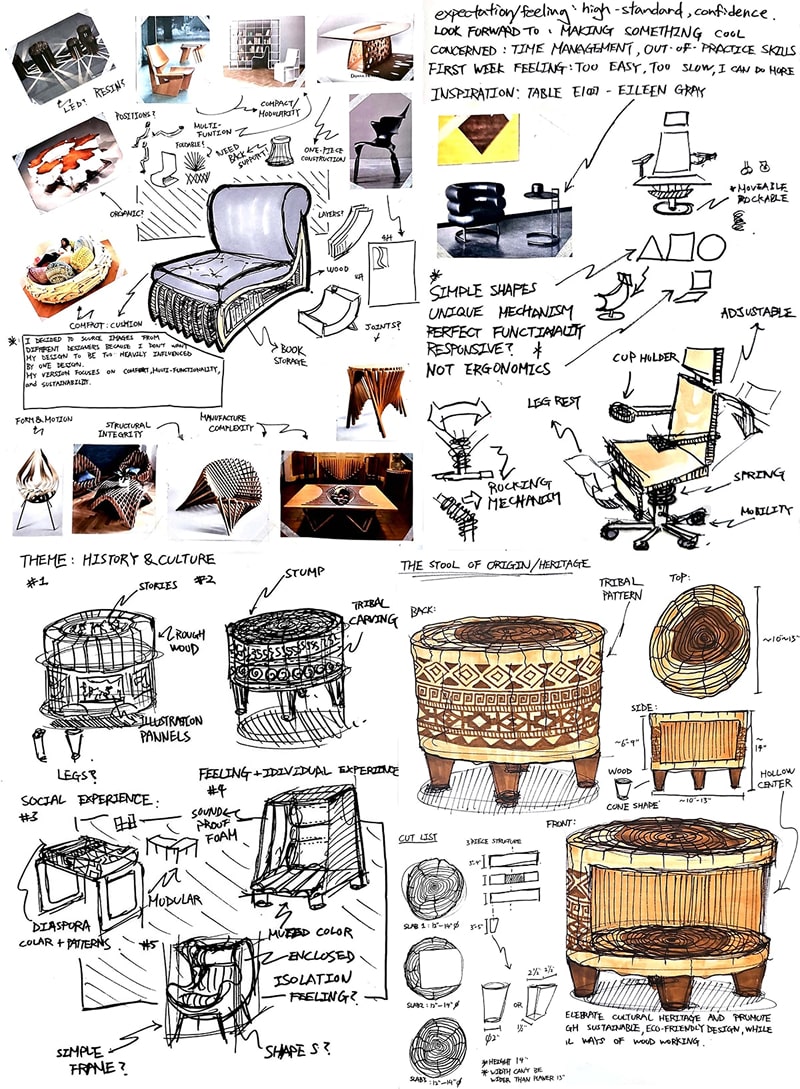 LED? RESINS
POSITIONS?
COMPACT/
MODULARITY
MULTI-
FUNTION
FOLDABLE?
NEED
BACK
SUPPORT!
ONE-PIECE
CONSTRUCTION
ORGANIC?
LAYERS?
WOOD
JOINTS?
COMPACT: CUSHION
BOOK
STORAGE
* I DECIDED TO SOURCE IMAGES FROM
DIFFERENT DESIGNERS BECAUSE I DON'T WANT
MY DESIGN TO BE TOO HEAVILY INFLUENCED
BY ONE DESIGN.
MY VERSION FOCUSES ON COMFORT, MULTI-FUNCTIONALITY,
and SUSTAINABILITY.
FORM & MOTION
STRUCTURAL
INTEGRITY
MANUFACTURE
COMPLEXITY
expectation/feeling: high-standard, confidence.
LOOK FORWARD TO: MAKING SOMETHING COOL
CONCERNED: TIME MANAGEMENT, OUT-OF-PRACTICE SKILLS
FIRST WEEK FEELING: TOO EASY, TOO SLOW, I CAN DO MORE
INSPIRATION: TABLE E1027 - EILEEN GRAY
* MOVEABLE
ROCKABLE
*
SIMPLE SHAPES
UNIQUE MECHANISM
PERFECT FUNCTIONALITY
RESPONSIVE? *
NOT ERGONOMICS
ADJUSTABLE
CUP HOLDER
LEG REST
ROCKING
MECHANISM
SPRING
MOBILITY
THEME: HISTORY & CULTURE
#1
STORIES
#2
STUMP
ROUGH
WOUD
TRIBAL
CARVING
ILLUSTRATION
PANNELS
LEGS?
SOCIAL EXPERIENCE:
#3
FEELING + IDIVIDUAL EXPERIENCE
#4
SOUND
PROOF
FOAM
MODULAR
DIASPORA
COLAR + PATTERNS
#5
MUTED COLOR
ENCLOSED
ISOLATION
FEELING?
SIMPLE
FRAME?
SHAPES?
THE STOOL OF ORIGIN/HERITAGE
BACK:
TRIBAL
PATTERN
TOP:
~10"-13"
SIDE:
~6"-9"
~14"
WOOD
CONE SHAPE
~10"-13"
HOLLOW
CENTER
CUT LIST
3 PIECE STRUTURE
SLAB 1: 12"-14" Ø
SLAB2: 12"-14" Ø
SLAB3: 12"-14" Ø
3"-5"
Ø2"
OR
FRONT:
* HEIGHT 14"
* WIDTH CAN'T BE
WIDER THAN PLANER 13"
ELEBRATE CULTURAL HERITAGE AND PROMOTE
GH SUSTAINABLE, ECO-FRIENDLY DESIGN, WHILE
IL WAYS OF WOOD WORKING.